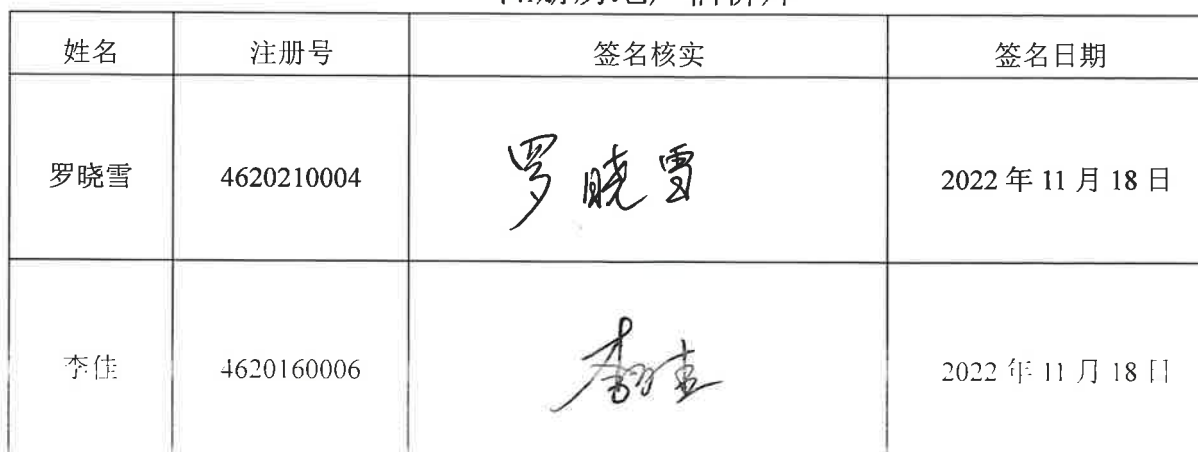 姓名 注册号 签名核实 签名日期
罗晓雪 4620210004 罗晓雪 2022 年 11 月 18 日
李佳 4620160006 李佳 2022 年 11 月 18 日